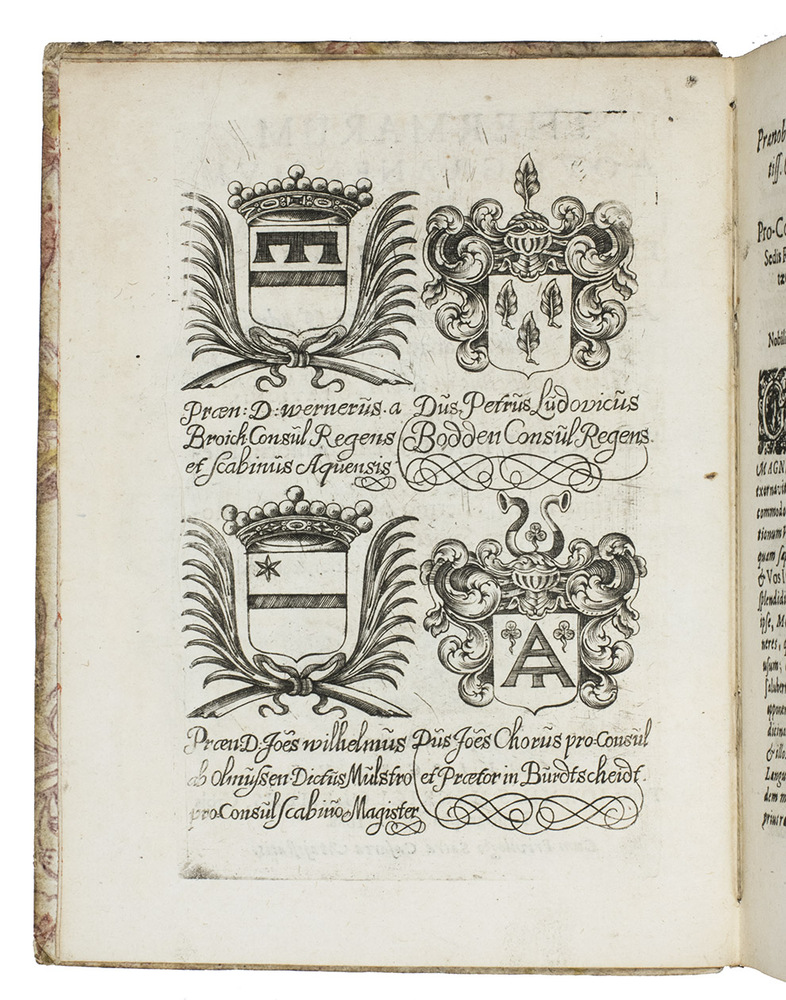 Præn: D: wernerũs. a
Broich Consũl Regens
et scabinũs Aquensis
Dũs, Petrũs Lũdovicũs
Bodden Consũl Regens.
Præn: D: Joẽs wilhelmũs
ab Olmũssen Dictũs Mũlstro
pro-Consũl scabino Magister
Dũs Joẽs Chorũs pro-Consũl
et Prætor in Bũrdtscheidt.
Prænob
tiss.
Pro-Co
Sedis R
Nobilis
MAGN
commoda
quam sap
& Vos
splendidi
ipse, M
usum;
saluberr
appone
dicina
& illo
Langu
dem m